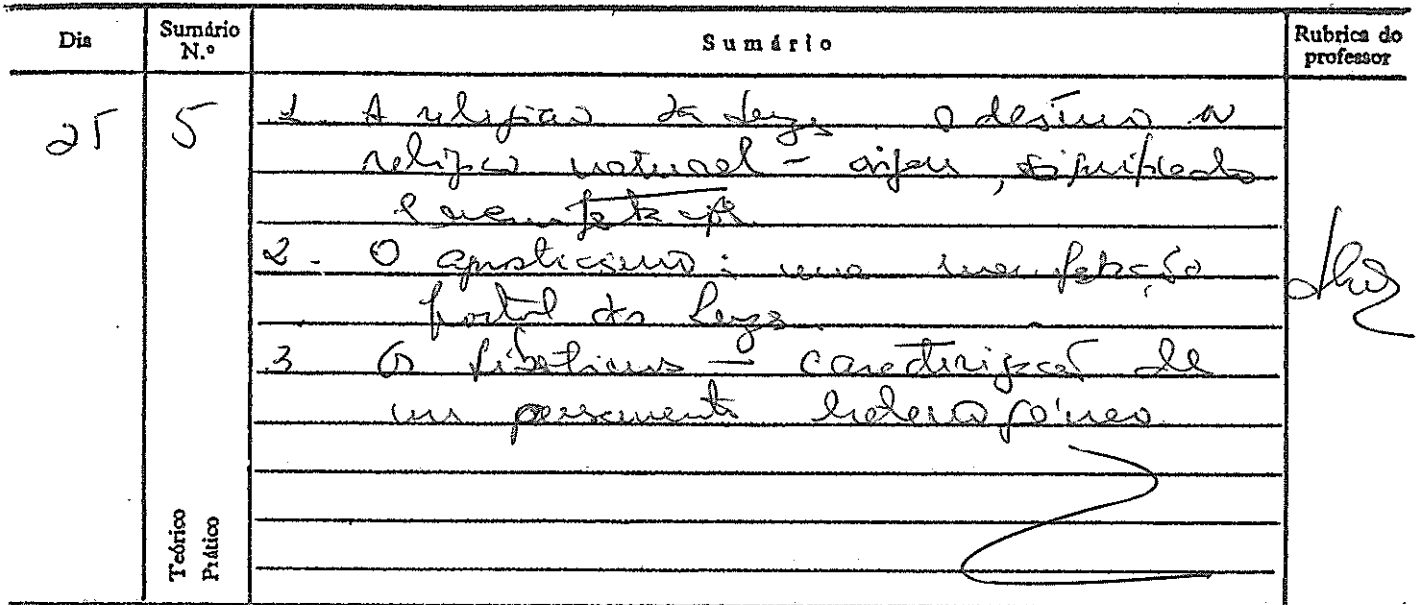 Dia
Sumário N.º
Sumário
Rubrica do professor
25
5
1. A religião das Luzes. O deísmo ou
religião natural - origem, significado
e manifestação
2. O agnosticismo: uma manifestação
das Luzes.
3. Os - caracterização de
um pensamento heterogéneo
Teórico
Prático